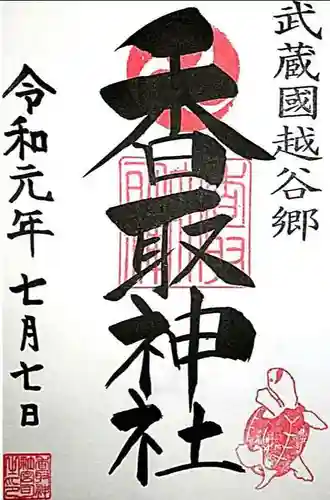 武蔵國越谷郷
香取神社
令和元年七月七日